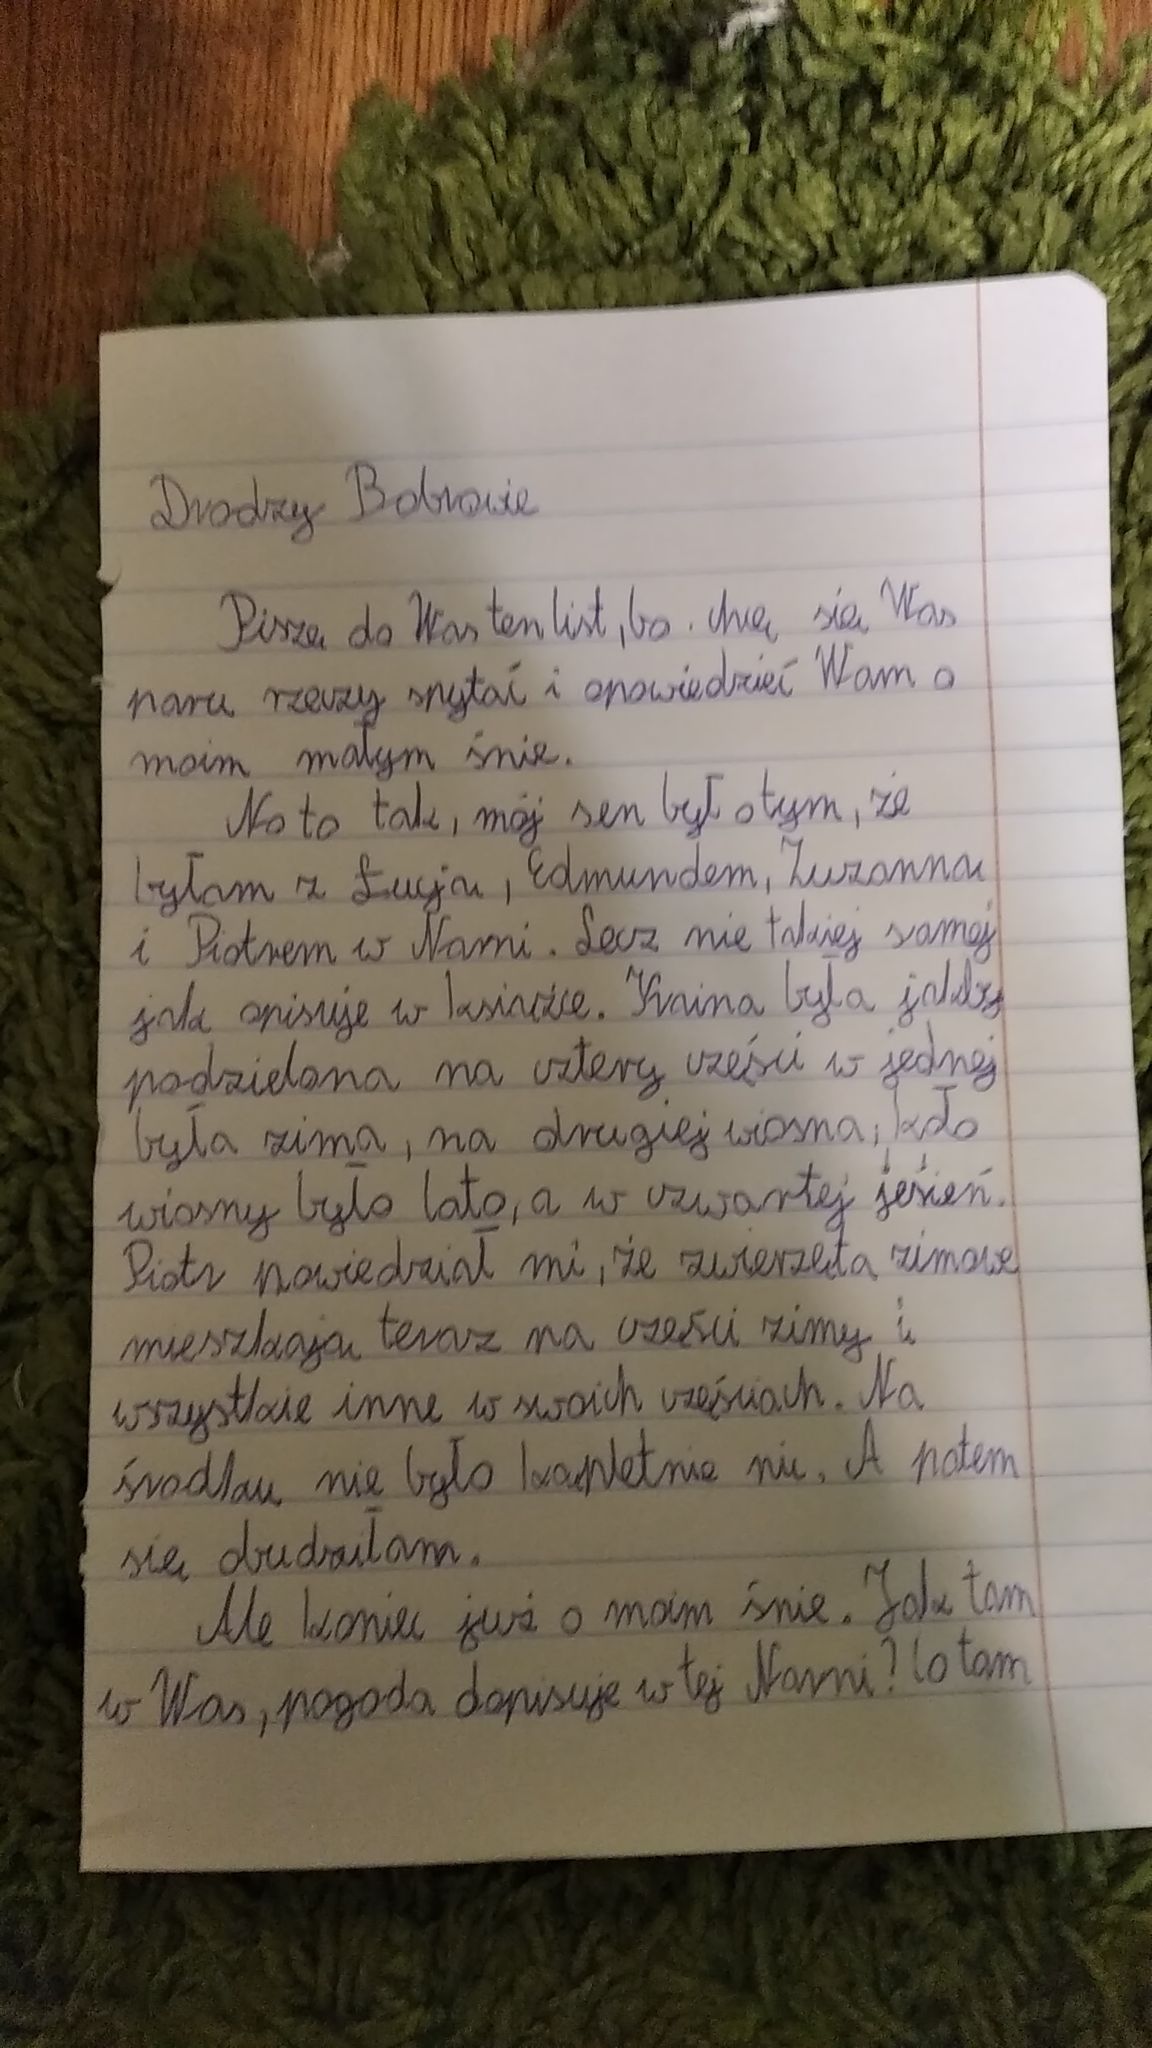 Drodzy Bobrowie
Piszę do Was ten list, bo. chcę się Was
paru rzeczy spytać i opowiedzieć Wam o
moim małym śnie.
No to tak, mój sen był o tym, że
byłam z Łucją, Edmundem, Zuzanną
i Piotrem w Narni. Lecz nie takiej samej
jak opisuje w książce. Kraina była jakby
podzielona na cztery części w jednej
była zima, na drugiej wiosna,
wiosny było lato, a w czwartej jesień.
Piotr powiedział mi, że zwierzęta zimowe
mieszkają teraz na części zimy i
wszystkie inne w swoich częściach. Na
środku nie było kąpletnie nic. A potem
się obudziłam.
Ale koniec już o moim śnie. Jak tam
w Was, pogoda dopisuje w tej Narni? Co tam